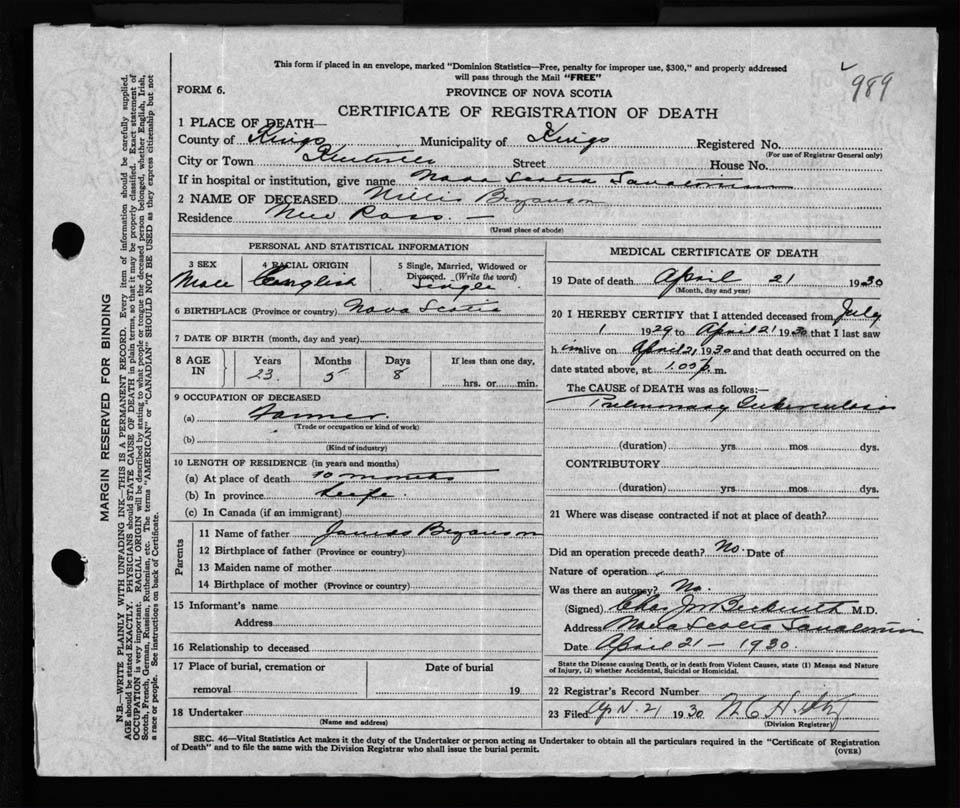 This form if placed in an envelope, marked "Dominion Statistics—Free, penalty for improper use, $300," and properly addressed
will pass through the Mail "FREE"
989
FORM 6.
PROVINCE OF NOVA SCOTIA
CERTIFICATE OF REGISTRATION OF DEATH
1 PLACE OF DEATH—
County of Kings Municipality of Kings Registered No.
(For use of Registrar General only)
City or Town Kentville Street House No.
If in hospital or institution, give name Nova Scotia Sanatorium
2 NAME OF DECEASED Willis
Residence New Ross
(Usual place of abode)
PERSONAL AND STATISTICAL INFORMATION
3 SEX 4 RACIAL ORIGIN 5 Single, Married, Widowed or
Divorced. (Write the word)
Male English Single
6 BIRTHPLACE (Province or country) Nova Scotia
7 DATE OF BIRTH (month, day and year)
8 AGE IN Years Months Days If less than one day,
23 5 8 hrs. or min.
9 OCCUPATION OF DECEASED
(a) Farmer.
(Trade or occupation or kind of work)
(b)
(Kind of industry)
10 LENGTH OF RESIDENCE (in years and months)
(a) At place of death 10 months
(b) In province Life
(c) In Canada (if an immigrant)
Parents
11 Name of father James
12 Birthplace of father (Province or country)
13 Maiden name of mother
14 Birthplace of mother (Province or country)
15 Informant's name
Address
16 Relationship to deceased
17 Place of burial, cremation or Date of burial
removal 19
18 Undertaker
(Name and address)
MEDICAL CERTIFICATE OF DEATH
19 Date of death April 21 1930
(Month, day and year)
20 I HEREBY CERTIFY that I attended deceased from July
1 1929 to April 21 1930 that I last saw
him alive on April 21, 1930 and that death occurred on the
date stated above, at 1.00 p. m.
The CAUSE of DEATH was as follows:—
Pulmonary Tuberculosis
(duration) yrs. mos. dys.
CONTRIBUTORY
(duration) yrs. mos. dys.
21 Where was disease contracted if not at place of death?
Did an operation precede death? No. Date of
Nature of operation
Was there an autopsy? No.
(Signed) M.D.
Address Nova Scotia Sanatorium
Date April 21 - 1930.
State the Disease causing Death, or in death from Violent Causes, state (1) Means and Nature
of Injury, (J) whether Accidental, Suicidal or Homicidal.
22 Registrar's Record Number
23 Filed 21 1930
(Division Registrar)
SEC. 46—Vital Statistics Act makes it the duty of the Undertaker or person acting as Undertaker to obtain all the particulars required in the "Certificate of Registration
of Death" and to file the same with the Division Registrar who shall issue the burial permit.
(OVER)
MARGIN RESERVED FOR BINDING
N.B.—WRITE PLAINLY WITH UNFADING INK—THIS IS A PERMANENT RECORD. Every item of information should be carefully supplied.
AGE should be stated EXACTLY. PHYSICIANS should STATE CAUSE OF DEATH in plain terms, so that it may be properly classified. Exact statement of
OCCUPATION is very important. RACIAL ORIGIN will be described by stating to what people or tongue the deceased person belonged, whether English, Irish,
Scotch, French, German, Russian, Ruthenian, etc. The terms "AMERICAN" or "CANADIAN" SHOULD NOT BE USED as they express citizenship but not
a race or people. See instructions on back of Certificate.